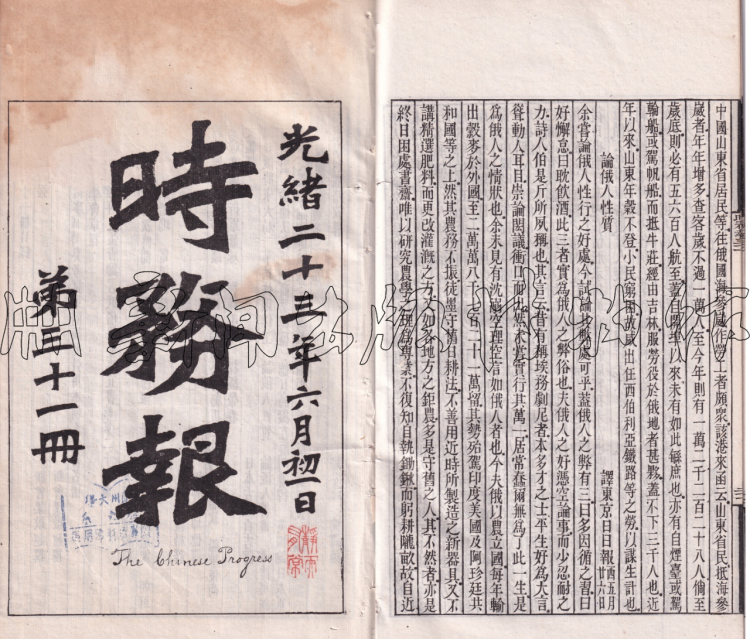 中國山東省居民等往俄國海參崴作工者頗衆該港來函云山東省民抵海參
崴者年年增多查客歲不過一萬人至今年則有一萬二千二百二十八人倘至
歲底則必有五六百人航至蓋自開港以來未有如此蕃庶也亦有自煙臺或駕
輪船或駕帆船而抵牛莊經由吉林服勞役於俄地者甚夥蓋不下三千人也近
年以來山東年穀不登小民窮困故咸出任西伯利亞鐵路等之勞以謀生計也
論俄人性質 譯東京日日報 西五月廿六日
余嘗論俄人性行之好處今試論其弊處可乎蓋俄人之弊有三曰多因循之習曰
好懈怠曰耽飲酒此三者實為俄人之弊俗也夫俄人之好憑空論事而少忍耐之
力詩人伯是斤所夙稱也其言云昔有稱埃務劇尼者本多才之士平生好為大言
聳動人耳目崇論閎議衝口而出然未嘗實行其萬一居常蠢爾無為了此一生是
為俄人之情狀也余未見有沈窮理至言如俄人者也今夫俄以農立國每年輸
出穀麥於外國至二萬萬八千七百二十一萬留其勢殆駕印度美國及阿珍廷共
和國等之上然其農務不振徒墨守舊日耕法不善用近時所製造之新器具又不
講精選肥料而更改灌漑之方法如各地方之鉅農多是守舊之人其不然者亦是
終日困處書齋唯以研究農學之理為專業不復知自執鋤鍬而躬耕隴畝故自近
光緒二十三年六月初一日
時務報
第三十一冊
The Chinese Progress